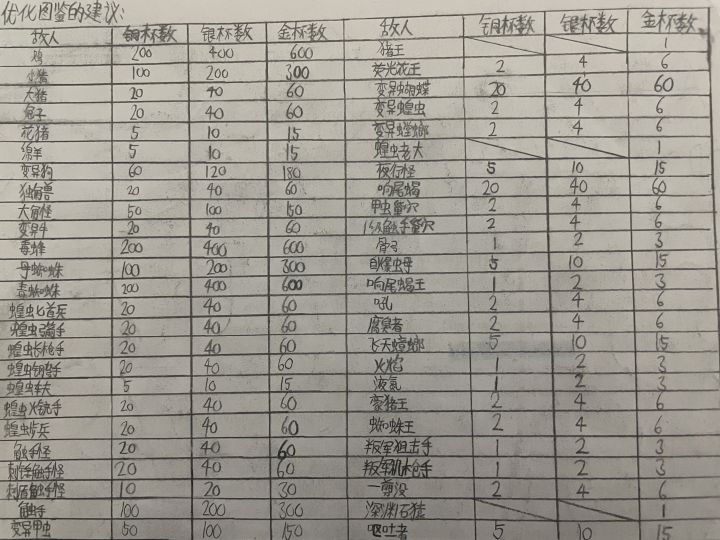 优化图鉴的建议:
敌人 铜杯数 银杯数 金杯数 敌人 铜杯数 银杯数 金杯数
鸡 200 400 600 猪王 1
小猪 100 200 300 荧光花王 2 4 6
大猪 20 40 60 变异蝴蝶 20 40 60
兔子 20 40 60 变异蝗虫 2 4 6
花猪 5 10 15 变异螳螂 2 4 6
绵羊 5 10 15 蝗虫老大 1
变异狗 60 120 180 夜行怪 5 10 15
独角兽 20 40 60 响尾蝎 20 40 60
大角怪 50 100 150 甲虫巢穴 2 4 6
变异牛 20 40 60 触手巢穴 2 4 6
毒蜂 200 400 600 骨弓 1 2 3
母蜘蛛 100 200 300 自爆虫母 5 10 15
毒蜘蛛 200 400 600 响尾蝎王 1 2 3
蝗虫匕首兵 20 40 60 吼 2 4 6
蝗虫弓箭手 20 40 60 腐臭者 2 4 6
蝗虫长枪手 20 40 60 飞天螳螂 5 10 15
蝗虫 20 40 60 火炮 1 2 3
蝗虫 5 10 15 液氮 1 2 3
蝗虫火铳手 20 40 60 豪猪王 2 4 6
蝗虫步兵 20 40 60 蜘蛛王 2 4 6
触手怪 20 40 60 叛军狙击手 1 2 3
刺锤触手怪 20 40 60 叛军机枪手 1 2 3
刺盾触手怪 10 20 30 一剪没 2 4 6
触手 100 200 300 深渊石猿 1
变异甲虫 50 100 150 呕吐者 5 10 15